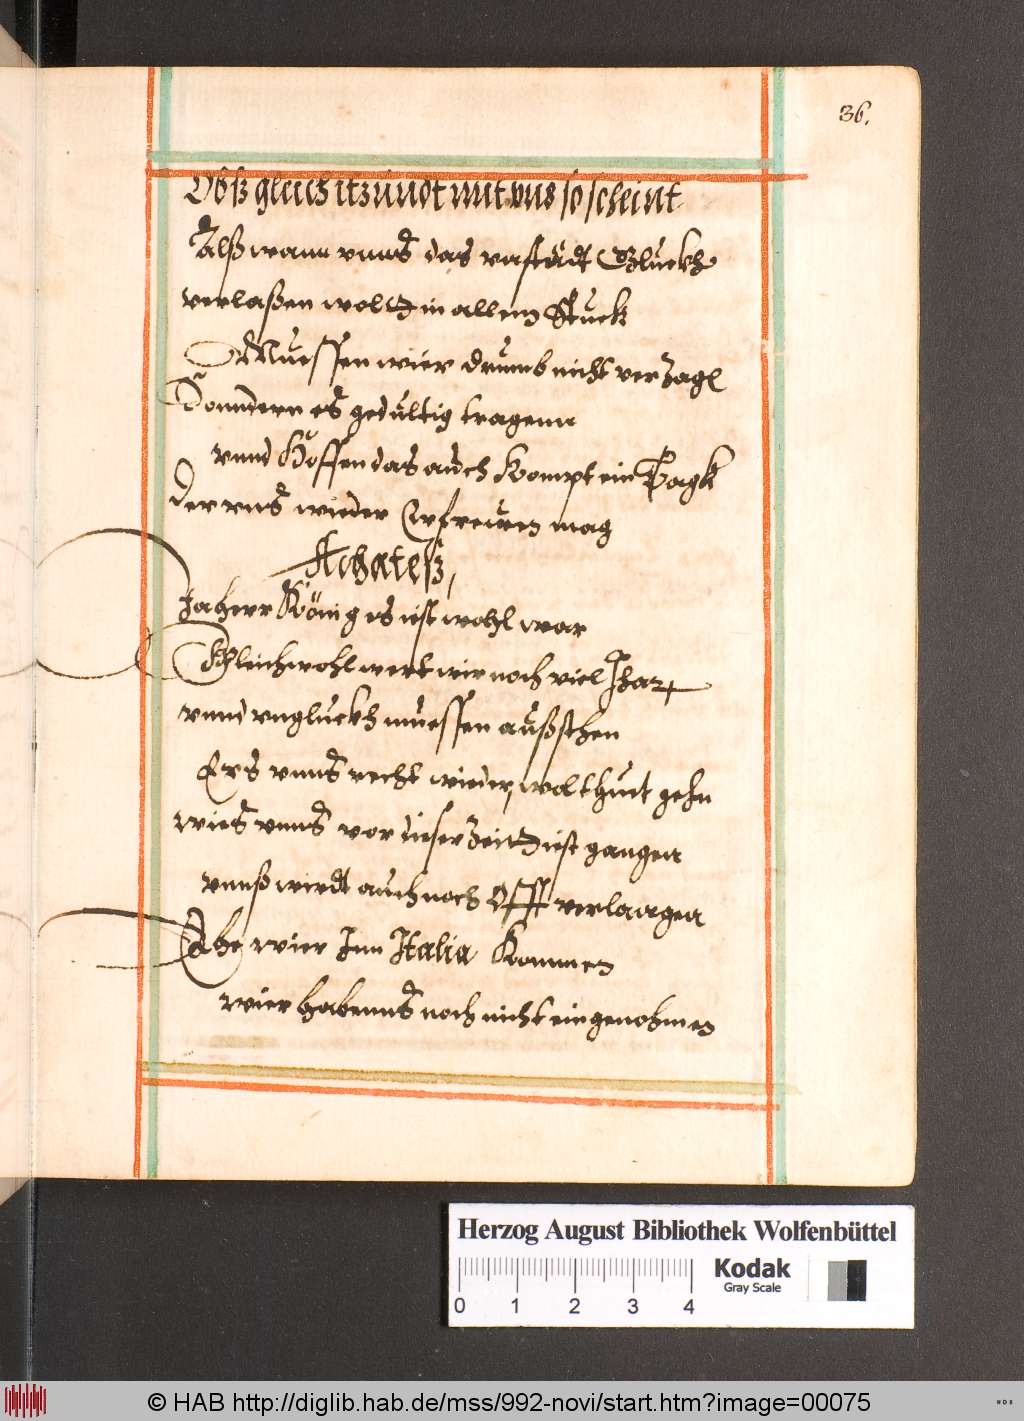 36.
Obß gleich itzundt mit vns so scheint
Alß wann vnnß das vnstädt Glückh
verlaßen wolt in allem Stuck
Muessen wier drumb nicht verzagē
Sonndern es gedültig tragenn
vnnd Hoffen das auch Kompt ein Tagk
der vnß wieder Erfreuen mag
Achateß,
Ja herr König es ist wohl war
Gleichwohl wert wir noch viel Jhar
vnnd vngluckh muessen außstehen
Ers vnnß recht wieder wol thuet gehn
wies vnnß vor dieser Zeit ist gangen
vnnß wirdt auch noch Offt verlangen
Ehe wier Inn Italia Kommen
wier habennß noch nicht eingenohmen
Herzog August Bibliothek Wolfenbüttel
0 1 2 3 4
Kodak
Gray Scale
© HAB http://diglib.hab.de/mss/992-novi/start.htm?image=00075